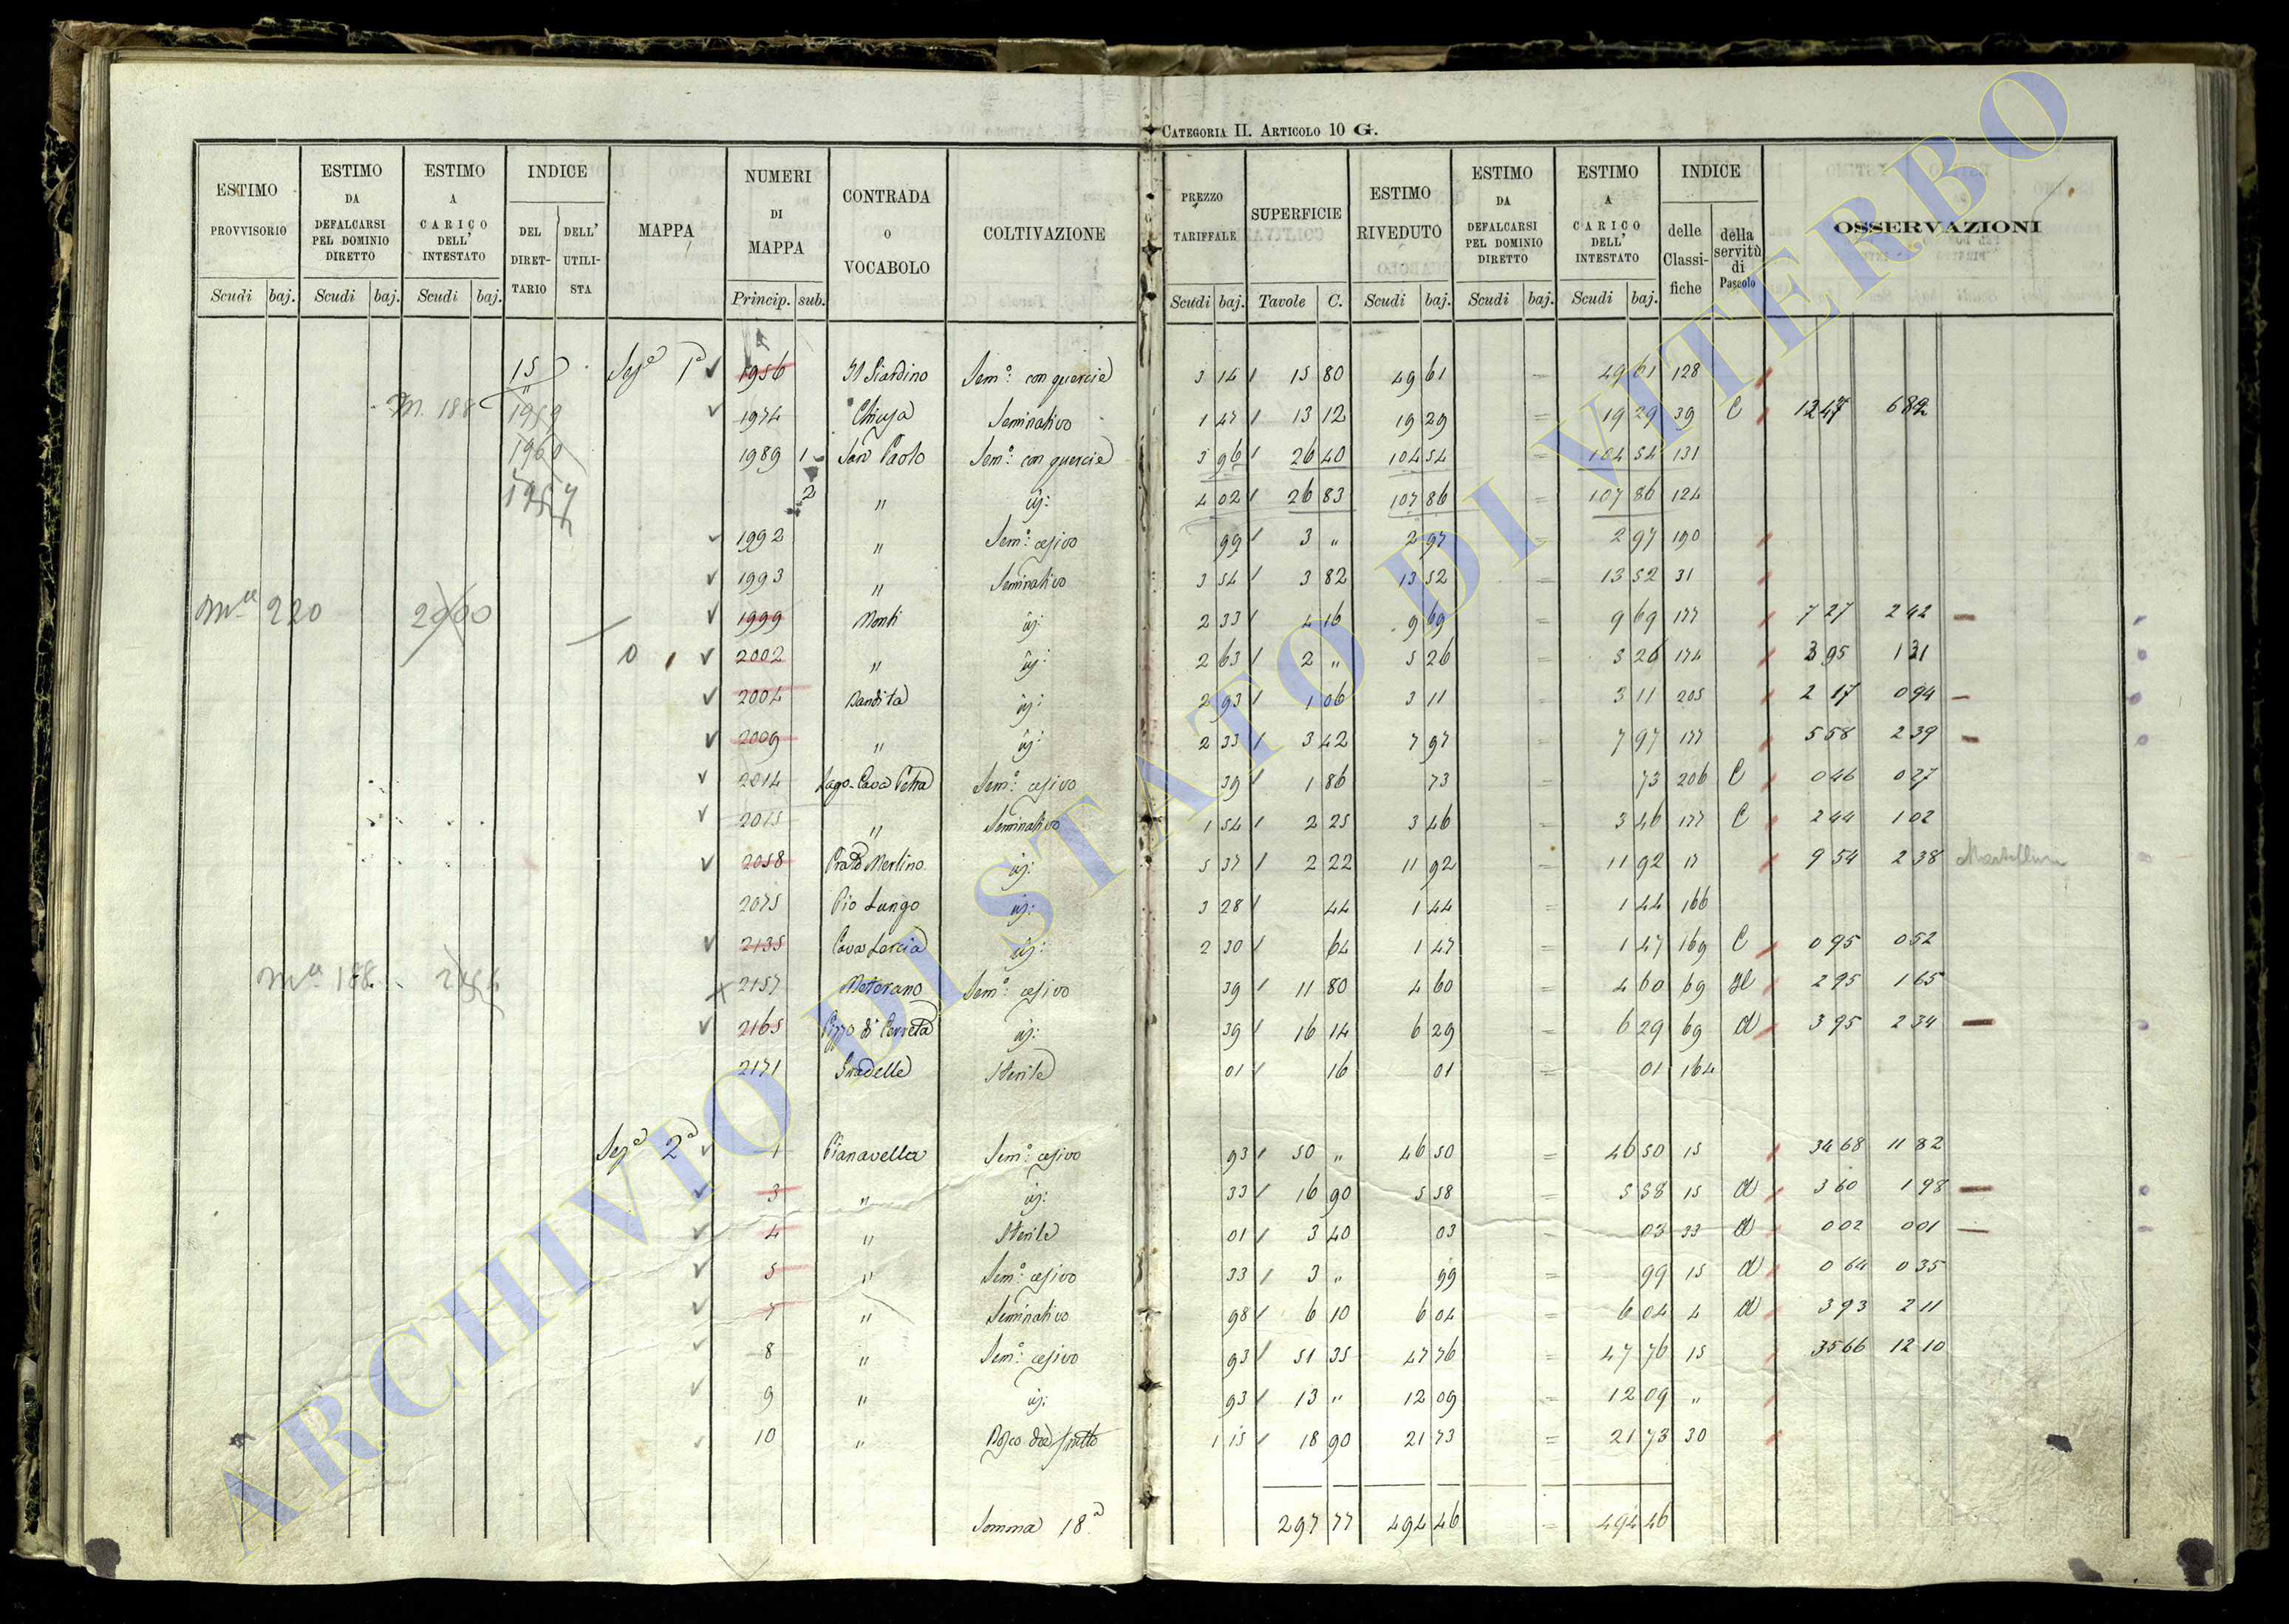 CATEGORIA II. ARTICOLO 10 G.
ESTIMO PROVVISORIO Scudi baj.
ESTIMO DA DEFALCARSI PEL DOMINIO DIRETTO Scudi baj.
ESTIMO A CARICO DELL' INTESTATO Scudi baj.
INDICE DEL DIRET-TARIO DELL' UTILI-STA
MAPPA
NUMERI DI MAPPA Princip. sub.
CONTRADA O VOCABOLO
COLTIVAZIONE
PREZZO TARIFFALE Scudi baj.
SUPERFICIE Tavole C.
ESTIMO RIVEDUTO Scudi baj.
ESTIMO DA DEFALCARSI PEL DOMINIO DIRETTO Scudi baj.
ESTIMO A CARICO DELL' INTESTATO Scudi baj.
INDICE delle Classi-fiche della servitù di Pascolo
OSSERVAZIONI
15 Sezª 1ª 1956 Il Giardino Semº: con quercie 3 14 15 80 49 61 = 49 61 128
188 1959 1974 Chiusa Seminativo 1 47 13 12 19 29 = 19 29 39 C 12 47 6 82
1960 1989 1 San Paolo Semº: con quercie 3 96 26 40 104 54 = 104 54 131
2 " id: 4 02 26 83 107 86 = 107 86 124
1992 " Semº: cesivo 99 3 " 2 97 = 2 97 190
1993 " Seminativo 3 54 3 82 13 52 = 13 52 31
220 2000 1999 Monti id: 2 33 4 16 9 69 = 9 69 177 7 27 2 42
2002 " id: 2 63 2 " 5 26 = 5 26 174 3 95 1 31
2004 Bandita id: 2 93 1 06 3 11 = 3 11 205 2 17 0 94
2009 " id: 2 33 3 42 7 97 = 7 97 177 5 58 2 39
2014 Lago-Cava Petra Semº: cesivo 39 1 86 73 = 73 206 C 0 46 0 27
2015 " Seminativo 1 54 2 25 3 46 = 3 46 177 C 2 44 1 02
2058 Prato Merlino id: 5 37 2 22 11 92 = 11 92 17 9 54 2 38
2075 Pio Lungo id: 3 28 44 1 44 = 1 44 166
2135 Cava Lercia id: 2 30 64 1 47 = 1 47 169 C 0 95 0 52
188 2157 Meterano Semº: cesivo 39 11 80 4 60 = 4 60 69 2 95 1 65
2165 Pizzo di Cerreta id: 39 16 14 6 29 = 6 29 69 d 3 95 2 34
2171 Gradelle Sterile 01 16 01 = 01 164
Sezª 2ª 1 Pianavella Semº: cesivo 93 50 " 46 50 = 46 50 15 34 68 11 82
3 " id: 33 16 90 5 58 = 5 58 15 d 3 60 1 98
4 " Sterile 01 3 40 03 = 03 33 d 0 02 0 01
5 " Semº: cesivo 33 3 " 99 = 99 15 d 0 64 0 35
7 " Seminativo 98 6 10 6 04 = 6 04 4 d 3 93 2 11
8 " Semº: cesivo 93 51 35 47 76 = 47 76 15 35 66 12 10
9 " id: 93 13 " 12 09 = 12 09 "
10 " Bosco 1 15 18 90 21 73 = 21 73 30
Somma 18ª 297 77 494 46 = 494 46
ARCHIVIO DI STATO DI VITERBO